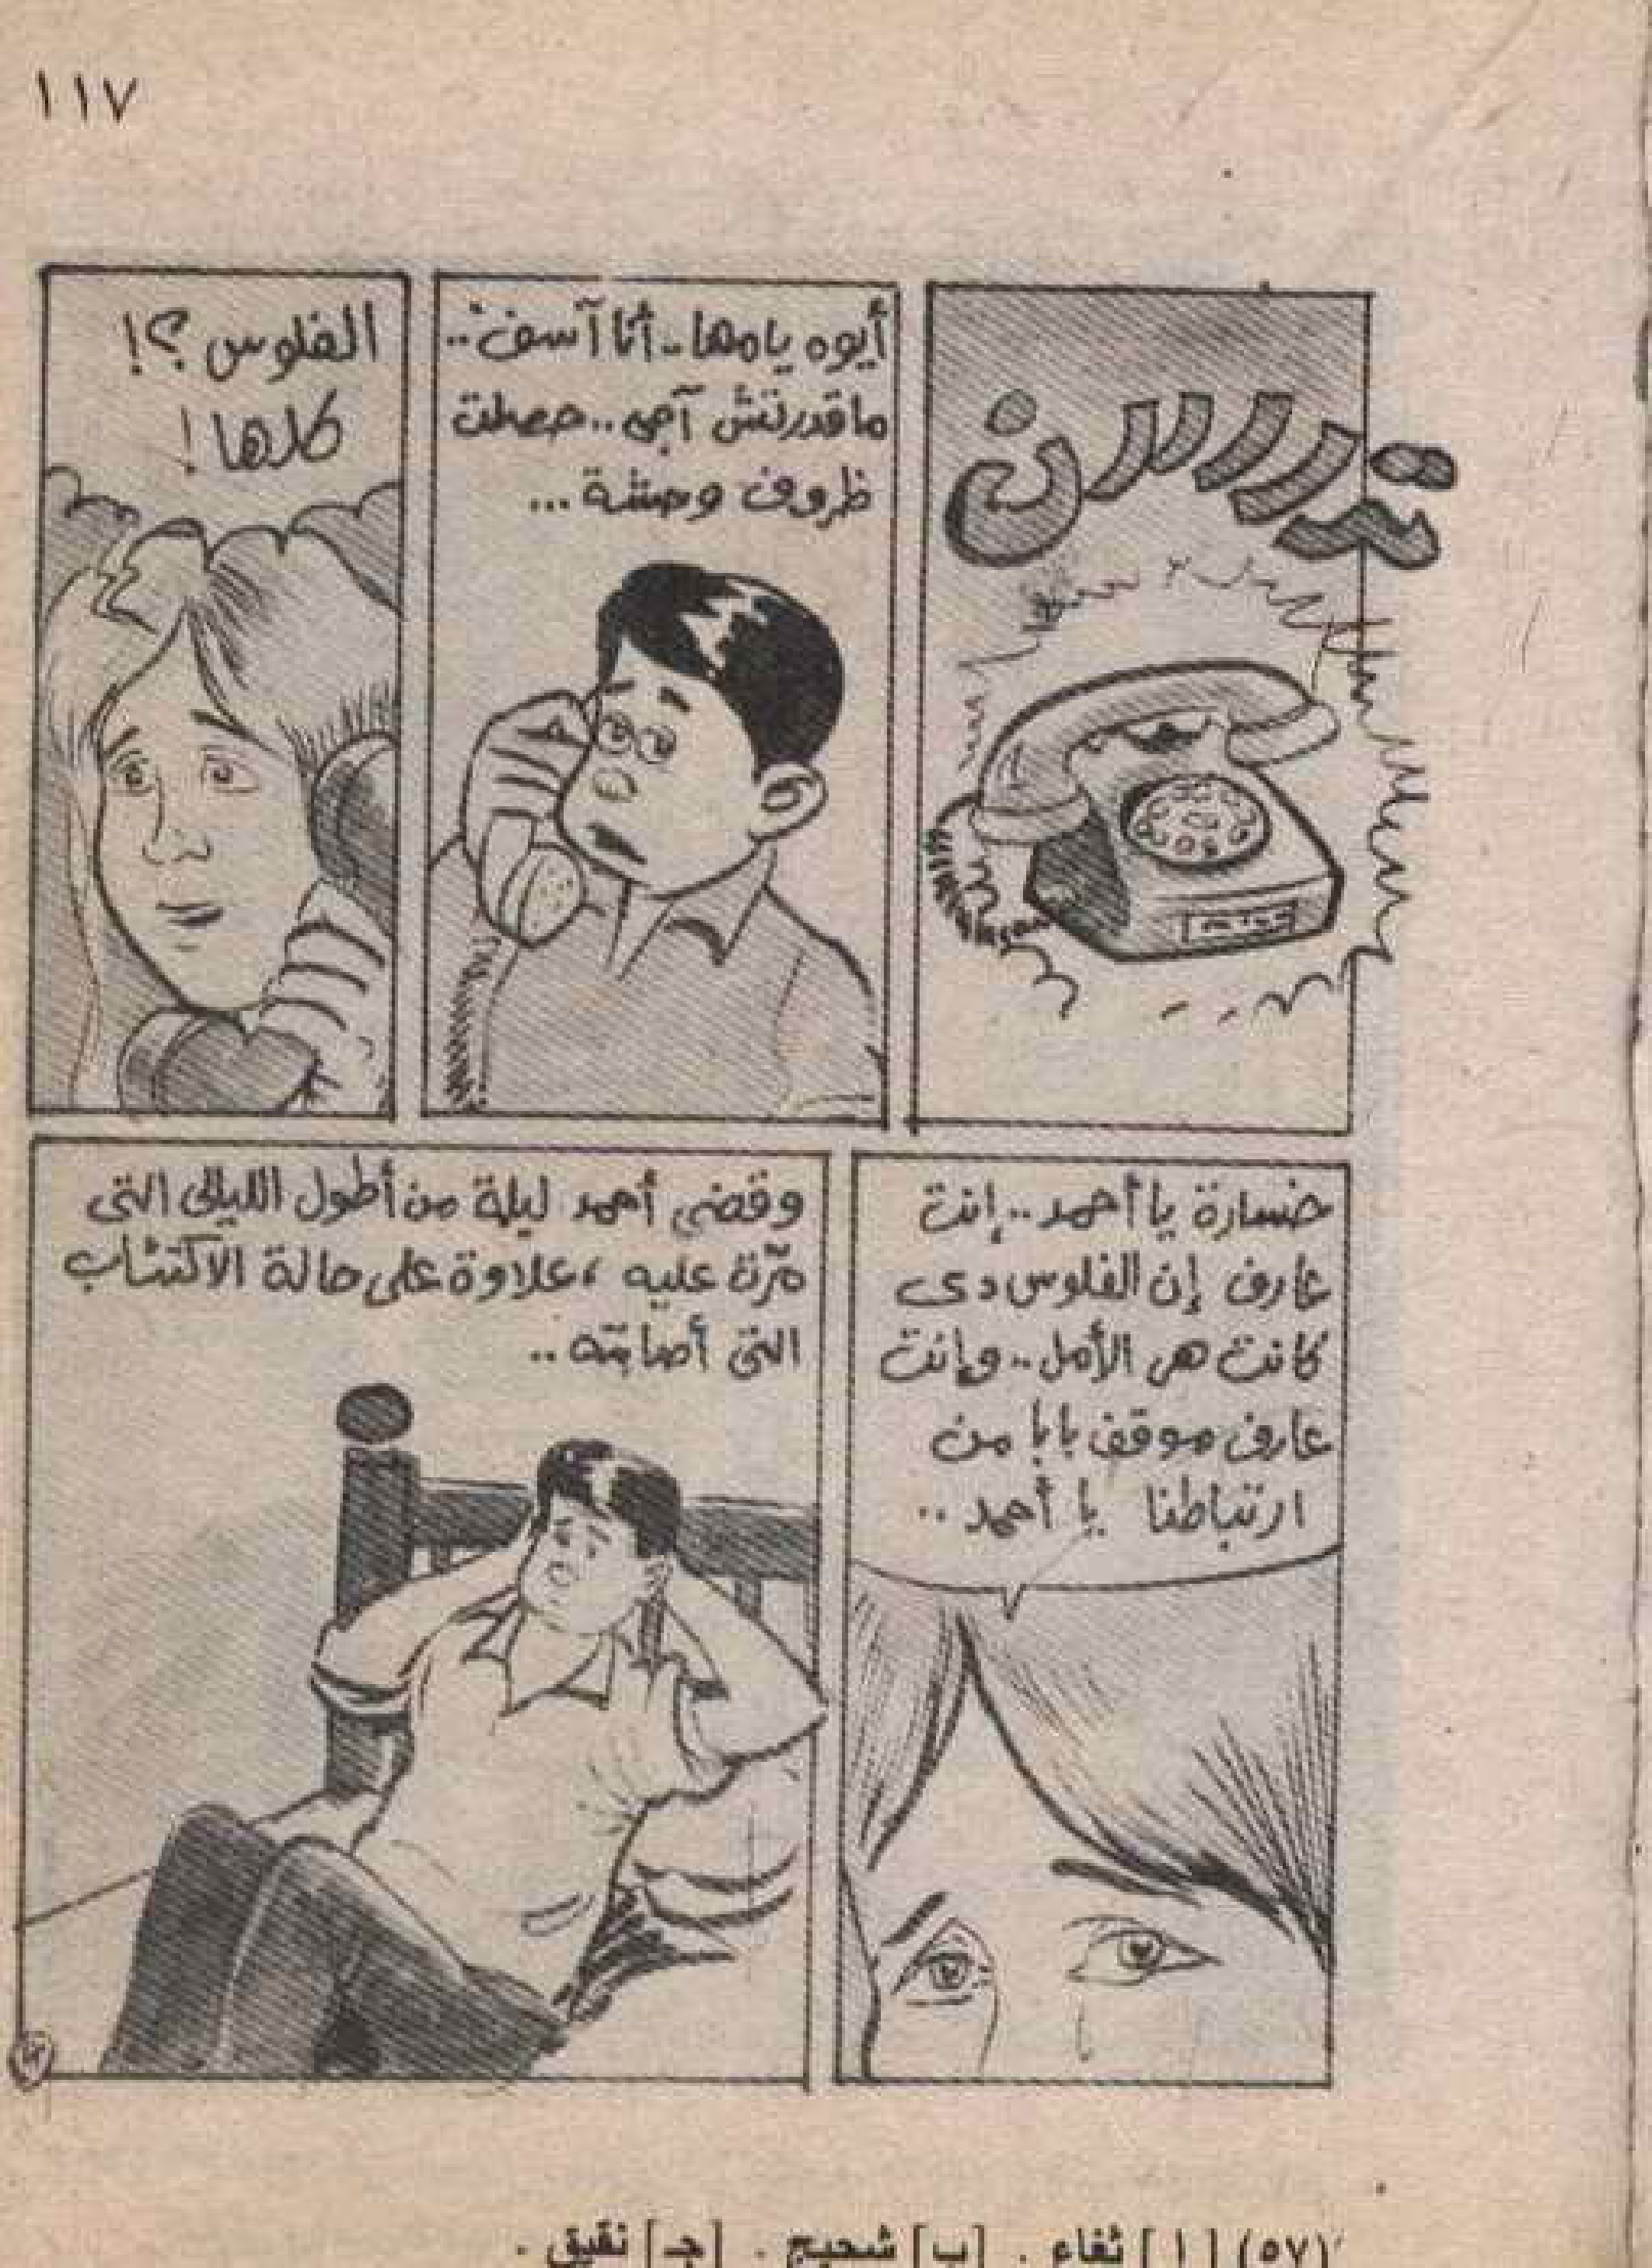 ١١٧
تررررن
أيوه يامها.. أنا آسف..
ماقدرتش آجى.. حصلت
ظروف وحشة...
الفلوس؟!
كلها!
خسارة يا أحمد.. إنت
عارف إن الفلوس دى
كانت هى الأمل.. وإنت
عارف موقف بابا من
ارتباطنا يا أحمد..
وقضى أحمد ليلة من أطول الليالى التى
مرّت عليه، علاوة على حالة الاكتئاب
التى أصابته..
(٥٧) [ ا ] ثغاء . [ب] شحيج . [جـ] نقيق .